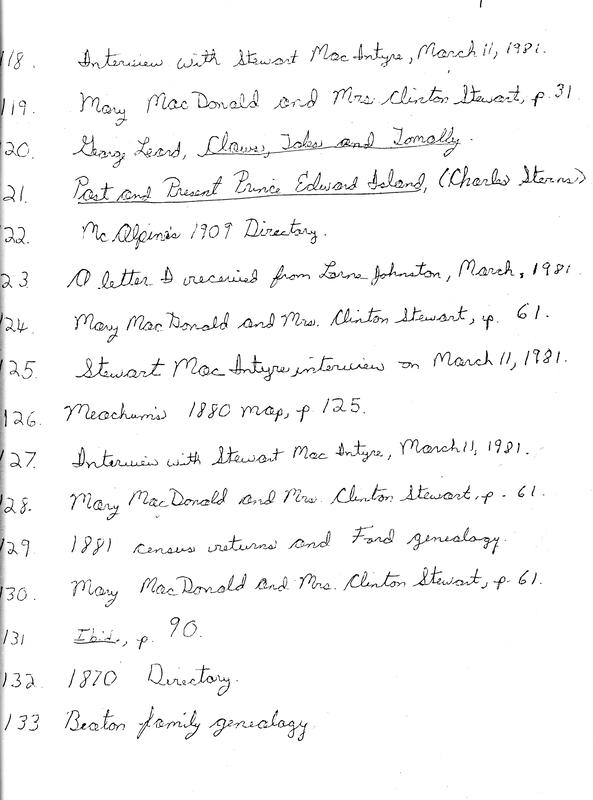 118. Interview with Stewart MacIntyre, March 11, 1981.
119. Mary MacDonald and Mrs. Clinton Stewart, p. 31
120. George Leard, and
121. Past and Present Prince Edward Island, (Charles Sterns)
122. McAlpine's 1909 Directory.
123 A letter I received from Lorne Johnston, March, 1981
124. Mary MacDonald and Mrs. Clinton Stewart, p. 61.
125. Stewart MacIntyre interview on March 11, 1981.
126. Meachum's 1880 map, p 125.
127. Interview with Stewart MacIntyre, March 11, 1981.
128. Mary MacDonald and Mrs. Clinton Stewart, p. 61.
129 1881 census returns and Ford genealogy.
130. Mary MacDonald and Mrs. Clinton Stewart, p. 61.
131 Ibid., p. 90.
132. 1870 Directory.
133 Beaton family genealogy